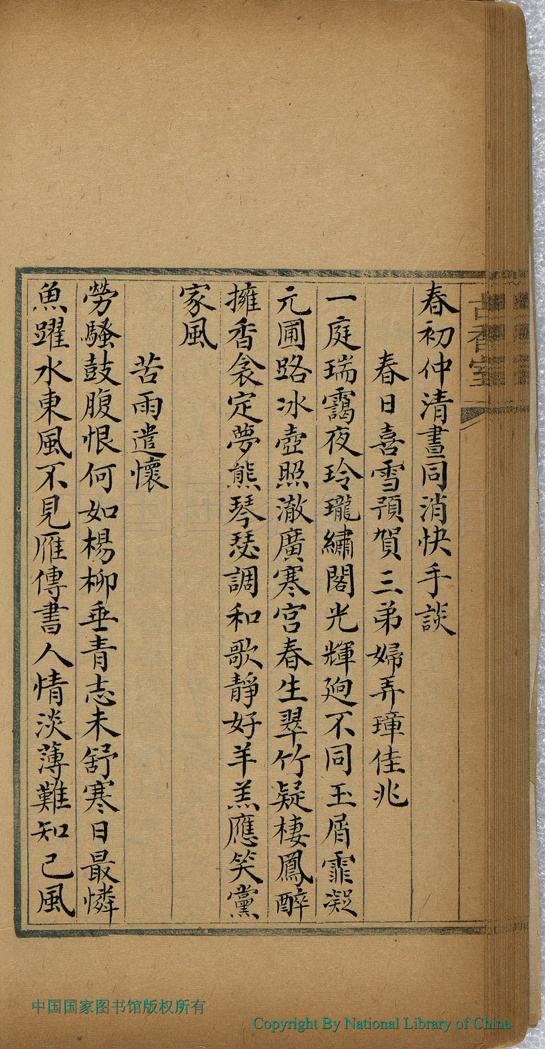 春初仲清晝同消快手談
春日喜雪預賀三弟婦弄璋佳兆
一庭瑞靄夜玲瓏繡閣光輝迥不同玉屑霏凝
元圃路冰壺照澈廣寒宮春生翠竹疑棲鳳醉
擁香衾定夢熊琴瑟調和歌靜好羊羔應笑黨
家風
苦雨遣懷
勞騷鼓腹恨何如楊柳垂青志未舒寒日最憐
魚躍水東風不見雁傳書人情淡薄難知己風
中国国家图书馆版权所有
Copyright By National Library of China